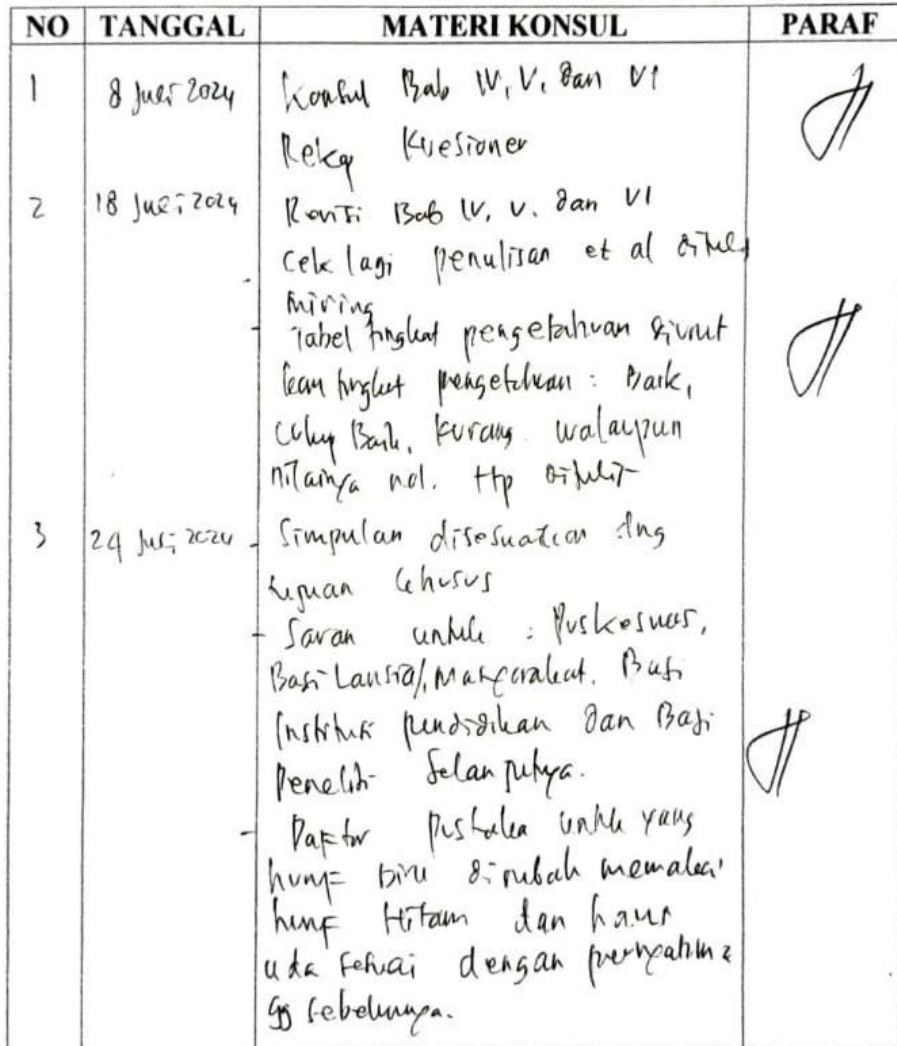 NO TANGGAL MATERI KONSUL PARAF
1 8 Juli 2024 Konsul Bab IV, V, dan VI
Rekap Kuesioner
2 18 Juli 2024 Revisi Bab IV, V. dan VI
Cek lagi penulisan et al ditulis
miring
- Tabel tingkat pengetahuan diurut
kan tingkat pengetahuan : Baik,
Cukup Baik, Kurang walaupun
nilainya nol. ttp ditulis
3 24 Juli 2024 - Simpulan disesuaikan dng
tujuan khusus
- Saran untuk : Puskesmas,
Bagi Lansia/Masyarakat. Bagi
Institusi pendidikan dan Bagi
Peneliti Selanjutnya.
- Daftar Pustaka untuk yang
huruf biru dirubah memakai
huruf Hitam dan harus
uda sesuai dengan
yg sebelumnya.